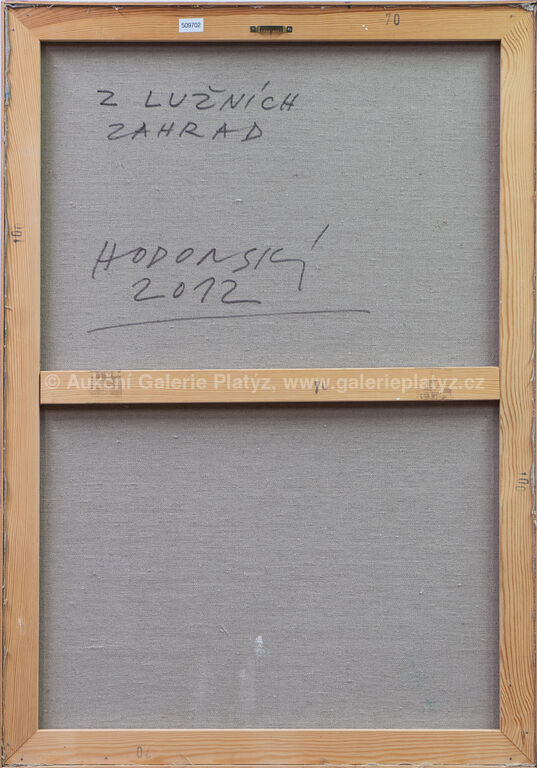 509702
70
Z LUŽNÍCH
ZAHRAD
100
HODONSKÝ
2012
© Aukční Galerie Platýz, www.galerieplatyz.cz
100
70